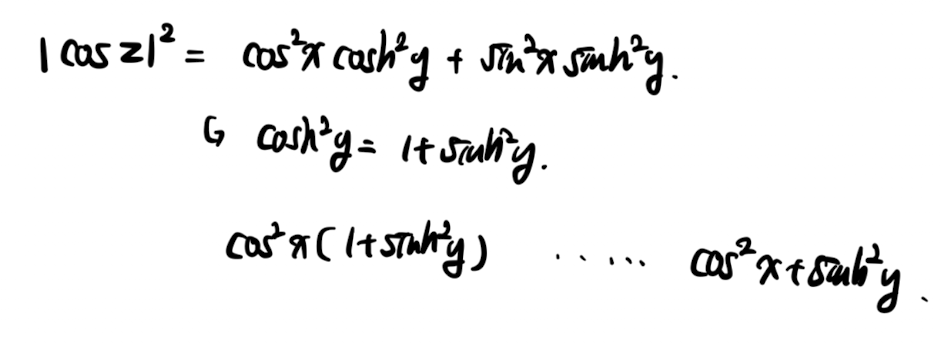 |cos z|² = cos²x cosh²y + sin²x sinh²y.
↳ cosh²y = 1 + sinh²y.
cos²x(1+sinh²y) ...... cos²x + sinh²y.